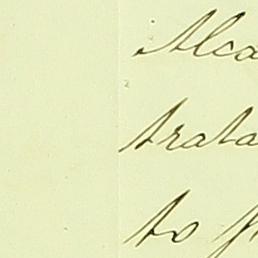 Alca
trata
to